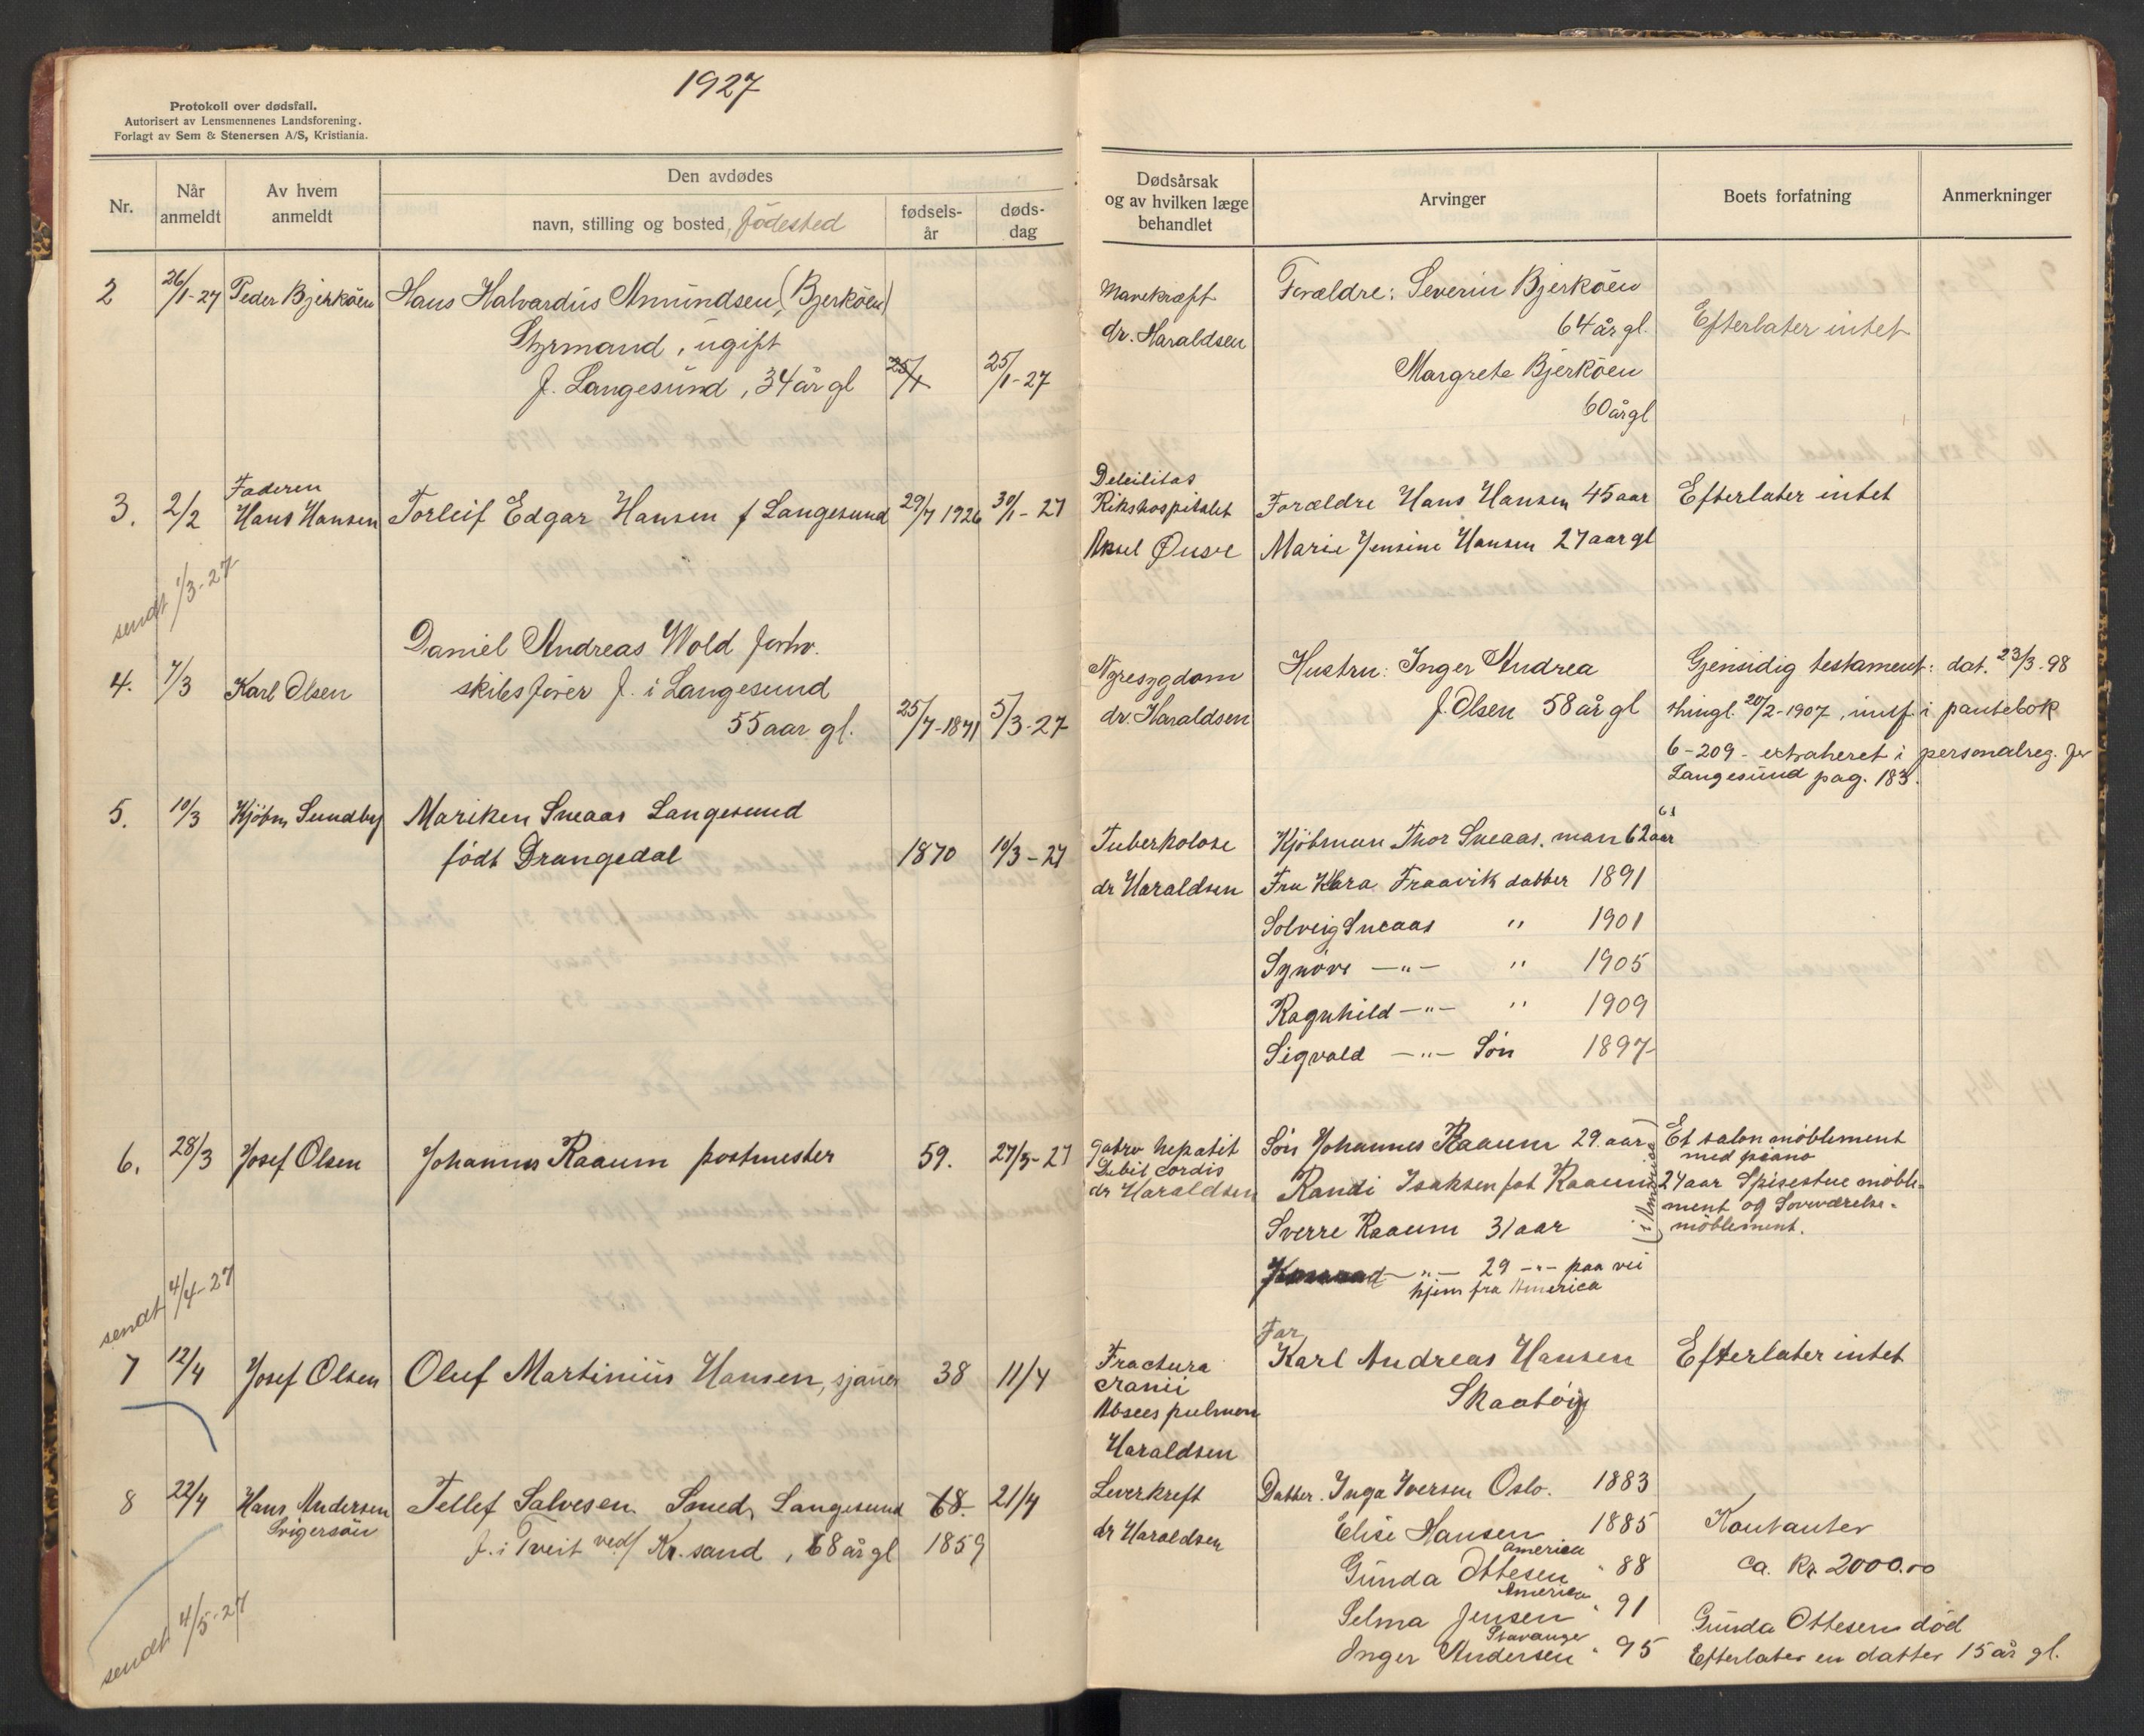 1927
Protokoll over dødsfall.
Autorisert av Lensmennenes Landsforening.
Forlagt av Sem & Stenersen A/S, Kristiania.
Nr.
Når anmeldt
Av hvem anmeldt
Den avdødes
navn, stilling og bosted, födested
fødsels-år
døds-dag
Dødsårsak og av hvilken læge behandlet
Arvinger
Boets forfatning
Anmerkninger
2 26/1-27 Peder Bjerköen Hans Halvardus Amundsen, (Bjerköen)
Styrmand, ugift
f. Langesund, 34 år gl 25/1 25/1-27
Mavekræft
dr. Haraldsen
Forældre: Severin Bjerköen
64 år gl.
Margrete Bjerköen
60 år gl
Efterlater intet
Faderen
3. 2/2 Hans Hansen Torleif Edgar Hansen f Langesund 29/7 1926 30/1-27
Rikshospitalet
Forældre Hans Hansen 45 aar
Marie Jensine Hansen 27 aar gl
Efterlater intet
sendt 1/3-27
Daniel Andreas Wold forhv.
4. 7/3 Karl Olsen skibsfører f. i Langesund
55 aar gl. 25/7-1871 5/3-27
Nyresygdom
dr. Haraldsen
Hustru: Inger Andrea
f. Olsen 58 år gl
Gjensidig testament: dat. 23/3-98
thingl. 20/2-1907, indf. i pantebok
6-209- extraheret i personalreg. for
Langesund pag. 183.
5. 10/3 Kjøbm Sundby Mariken Sneaas Langesund
født Drangedal 1870 10/3-27
Tuberkolose
dr Haraldsen
61
Kjöbman Thor Sneaas. man 62 aar
Fru Klara Fraavik datter 1891
Solveig Sneaas " 1901
Synöve -"- " 1905
Ragnhild -"- " 1909
Sigvald -"- Sön 1897
6. 28/3 Josef Olsen Johannes Raaum postmester 59. 27/3-27
hepatit
Debil cordis
dr Haraldsen
Sön Johannes Raaum 29. aar
Randi Isaksen föt Raaum 24 aar
Sverre Raaum 31 aar
(i America)
-"- 29 -"- paa vei
hjem fra America
Et salon möblement
med piano
Spisestue möble-
ment og Soveværelse-
möblement.
sendt 4/4-27
7 12/4 Josef Olsen Oluf Martinius Hansen, sjauer 38 11/4
Fractura
cranii
Absces pulmon
Haraldsen
Far
Karl Andreas Hansen
Skaatöy
Efterlater intet
8 22/4 Hans Andersen Tellef Salvesen Smed, Langesund 68. 21/4
Svigersön
f. i Tveit ved/ Kr. sand, 68 år gl 1859
Leverkreft
dr Haraldsen
Datter. Inga Iversen Oslo. 1883
Elise Hansen. 1885
America
Gunda Ottesen " 88
America
Selma Jensen " 91
Stavanger
Inger Andersen " 95
Kontanter
ca. Kr. 2000.00
Gunda Ottesen död
Efterlater en datter 15 år gl.
sendt 4/5-27